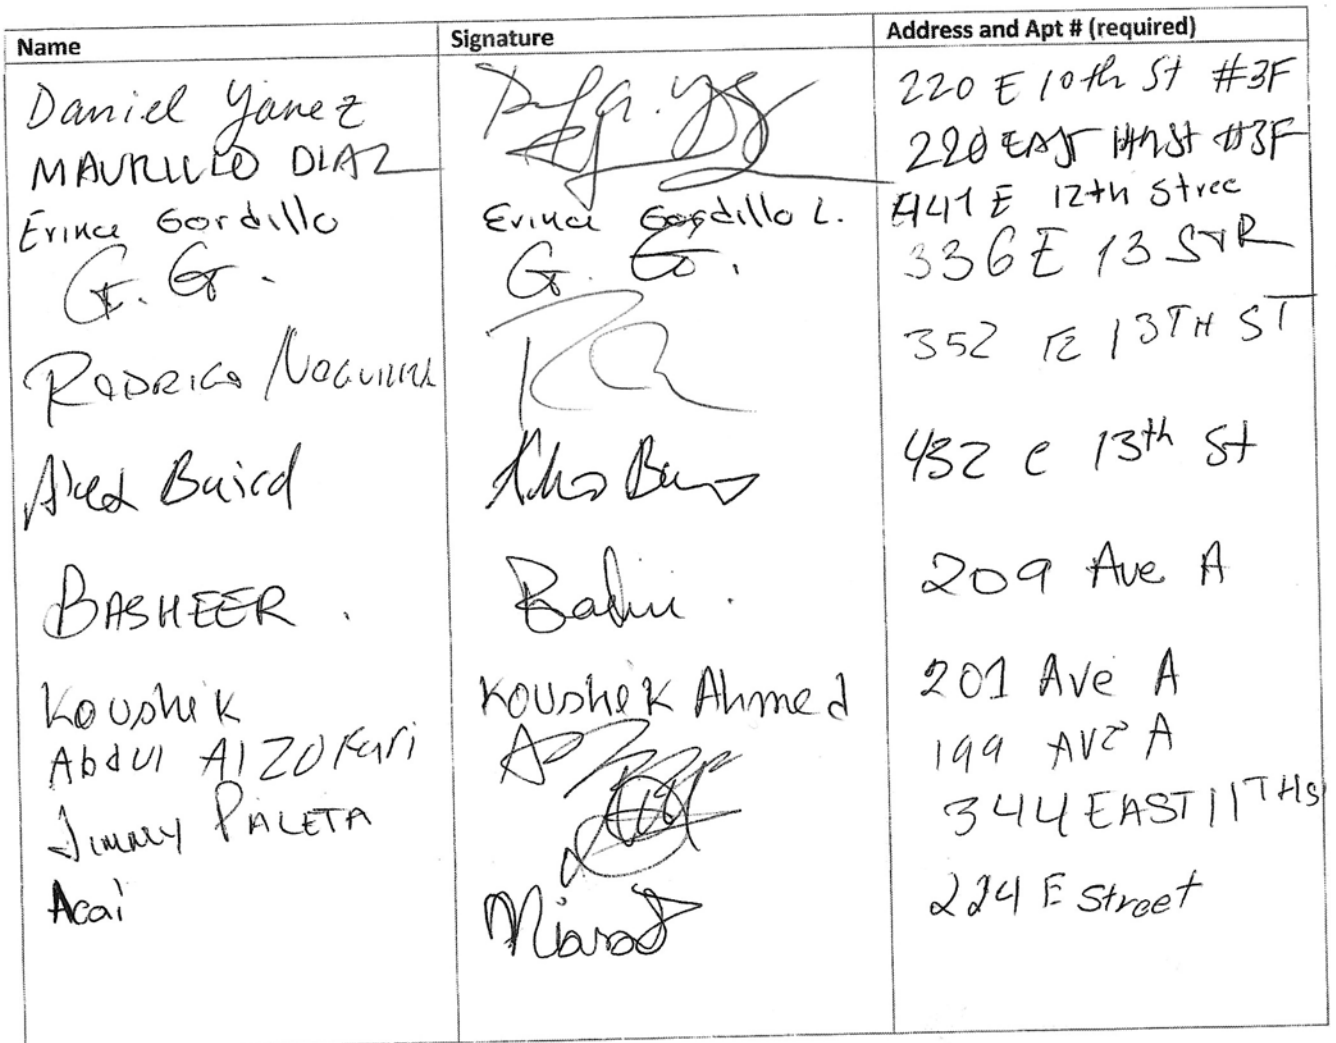 Name Signature Address and Apt # (required)
Daniel Yanez 220 E 10th St #3F
MAURILIO DIAZ 220 EAST St #3F
Erika Gordillo Erika Gordillo L. 441 E 12th Stree
G. G. G. G. 336 E 13 STR
RODRIGO NOGUEIRA 352 E 13TH ST
Alex Baird 432 e 13th St
BASHEER . 209 Ave A
Koushik Koushek Ahmed 201 Ave A
Abdul Alzokari 199 AVE A
Jimmy PALETA 344 EAST 11THS
Acai 224 E Street